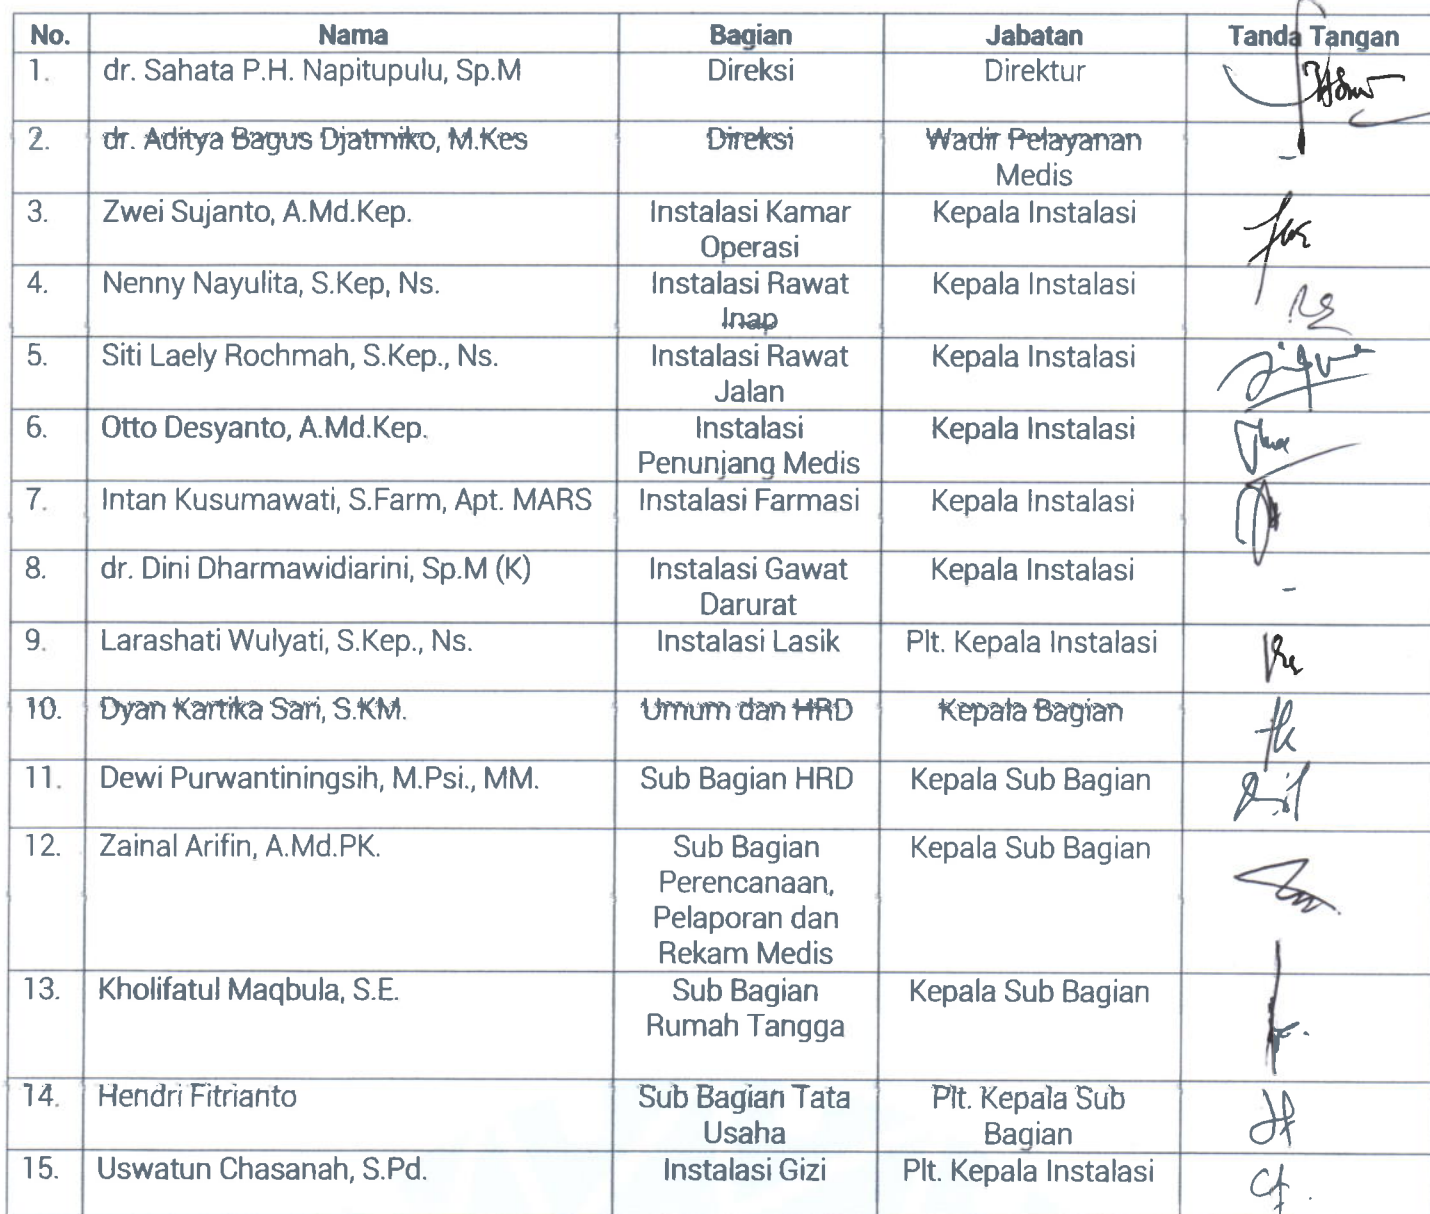 No. Nama Bagian Jabatan Tanda Tangan
1. dr. Sahata P.H. Napitupulu, Sp.M Direksi Direktur
2. dr. Aditya Bagus Djatmiko, M.Kes Direksi Wadir Pelayanan
Medis -
3. Zwei Sujanto, A.Md.Kep. Instalasi Kamar Kepala Instalasi
Operasi
4. Nenny Nayulita, S.Kep, Ns. Instalasi Rawat Kepala Instalasi
Inap
5. Siti Laely Rochmah, S.Kep., Ns. Instalasi Rawat Kepala Instalasi
Jalan
6. Otto Desyanto, A.Md.Kep. Instalasi Kepala Instalasi
Penunjang Medis
7. Intan Kusumawati, S.Farm, Apt. MARS Instalasi Farmasi Kepala Instalasi
8. dr. Dini Dharmawidiarini, Sp.M (K) Instalasi Gawat Kepala Instalasi
Darurat -
9. Larashati Wulyati, S.Kep., Ns. Instalasi Lasik Plt. Kepala Instalasi
10. Dyan Kartika Sari, S.KM. Umum dan HRD Kepala Bagian
11. Dewi Purwantiningsih, M.Psi., MM. Sub Bagian HRD Kepala Sub Bagian
12. Zainal Arifin, A.Md.PK. Sub Bagian Kepala Sub Bagian
Perencanaan,
Pelaporan dan
Rekam Medis
13. Kholifatul Maqbula, S.E. Sub Bagian Kepala Sub Bagian
Rumah Tangga
14. Hendri Fitrianto Sub Bagian Tata Plt. Kepala Sub
Usaha Bagian
15. Uswatun Chasanah, S.Pd. Instalasi Gizi Plt. Kepala Instalasi